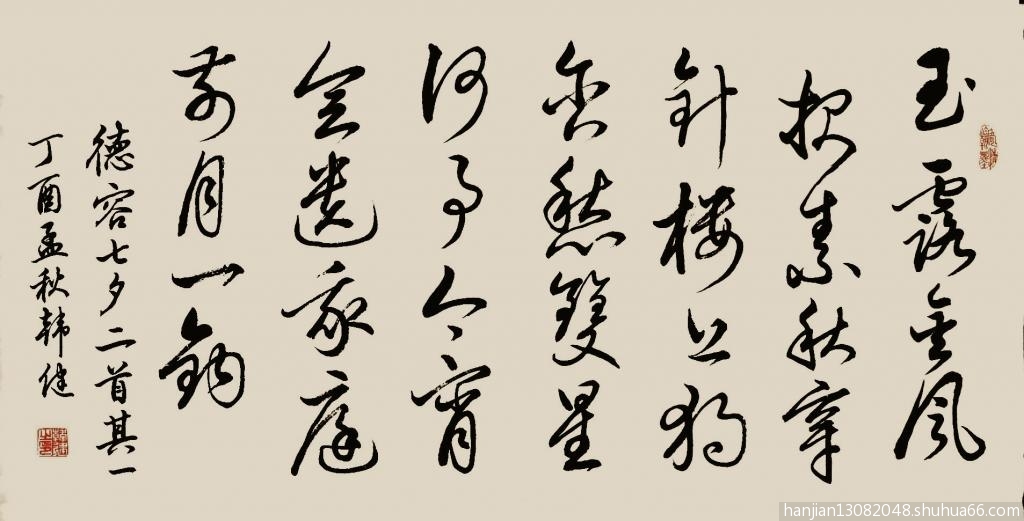 玉露金风
报素秋穿
針楼上独
含愁雙星
何事今宵
会遗我庭
前月一鈎
德容七夕二首其一
丁酉孟秋韩健
hanjian13082048.shuhua66.com